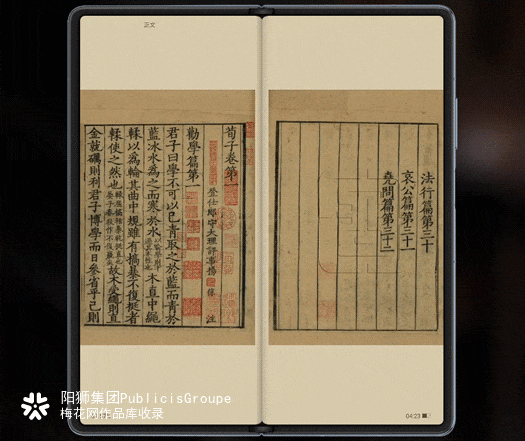 正文
法行篇第三十
哀公篇第三十一
堯問篇第三十二
荀子卷第一
登仕郎守大理評事楊倞注
勸學篇第一
君子曰學不可以已青取之於藍而青於
藍冰水為之而寒於水木直中繩
輮以為輪其曲中規雖有槁暴不復挺者
輮使之然也故木受繩則直
金就礪則利君子博學而日參省乎己則
04:23
阳狮集团PublicisGroupe
梅花网作品库收录